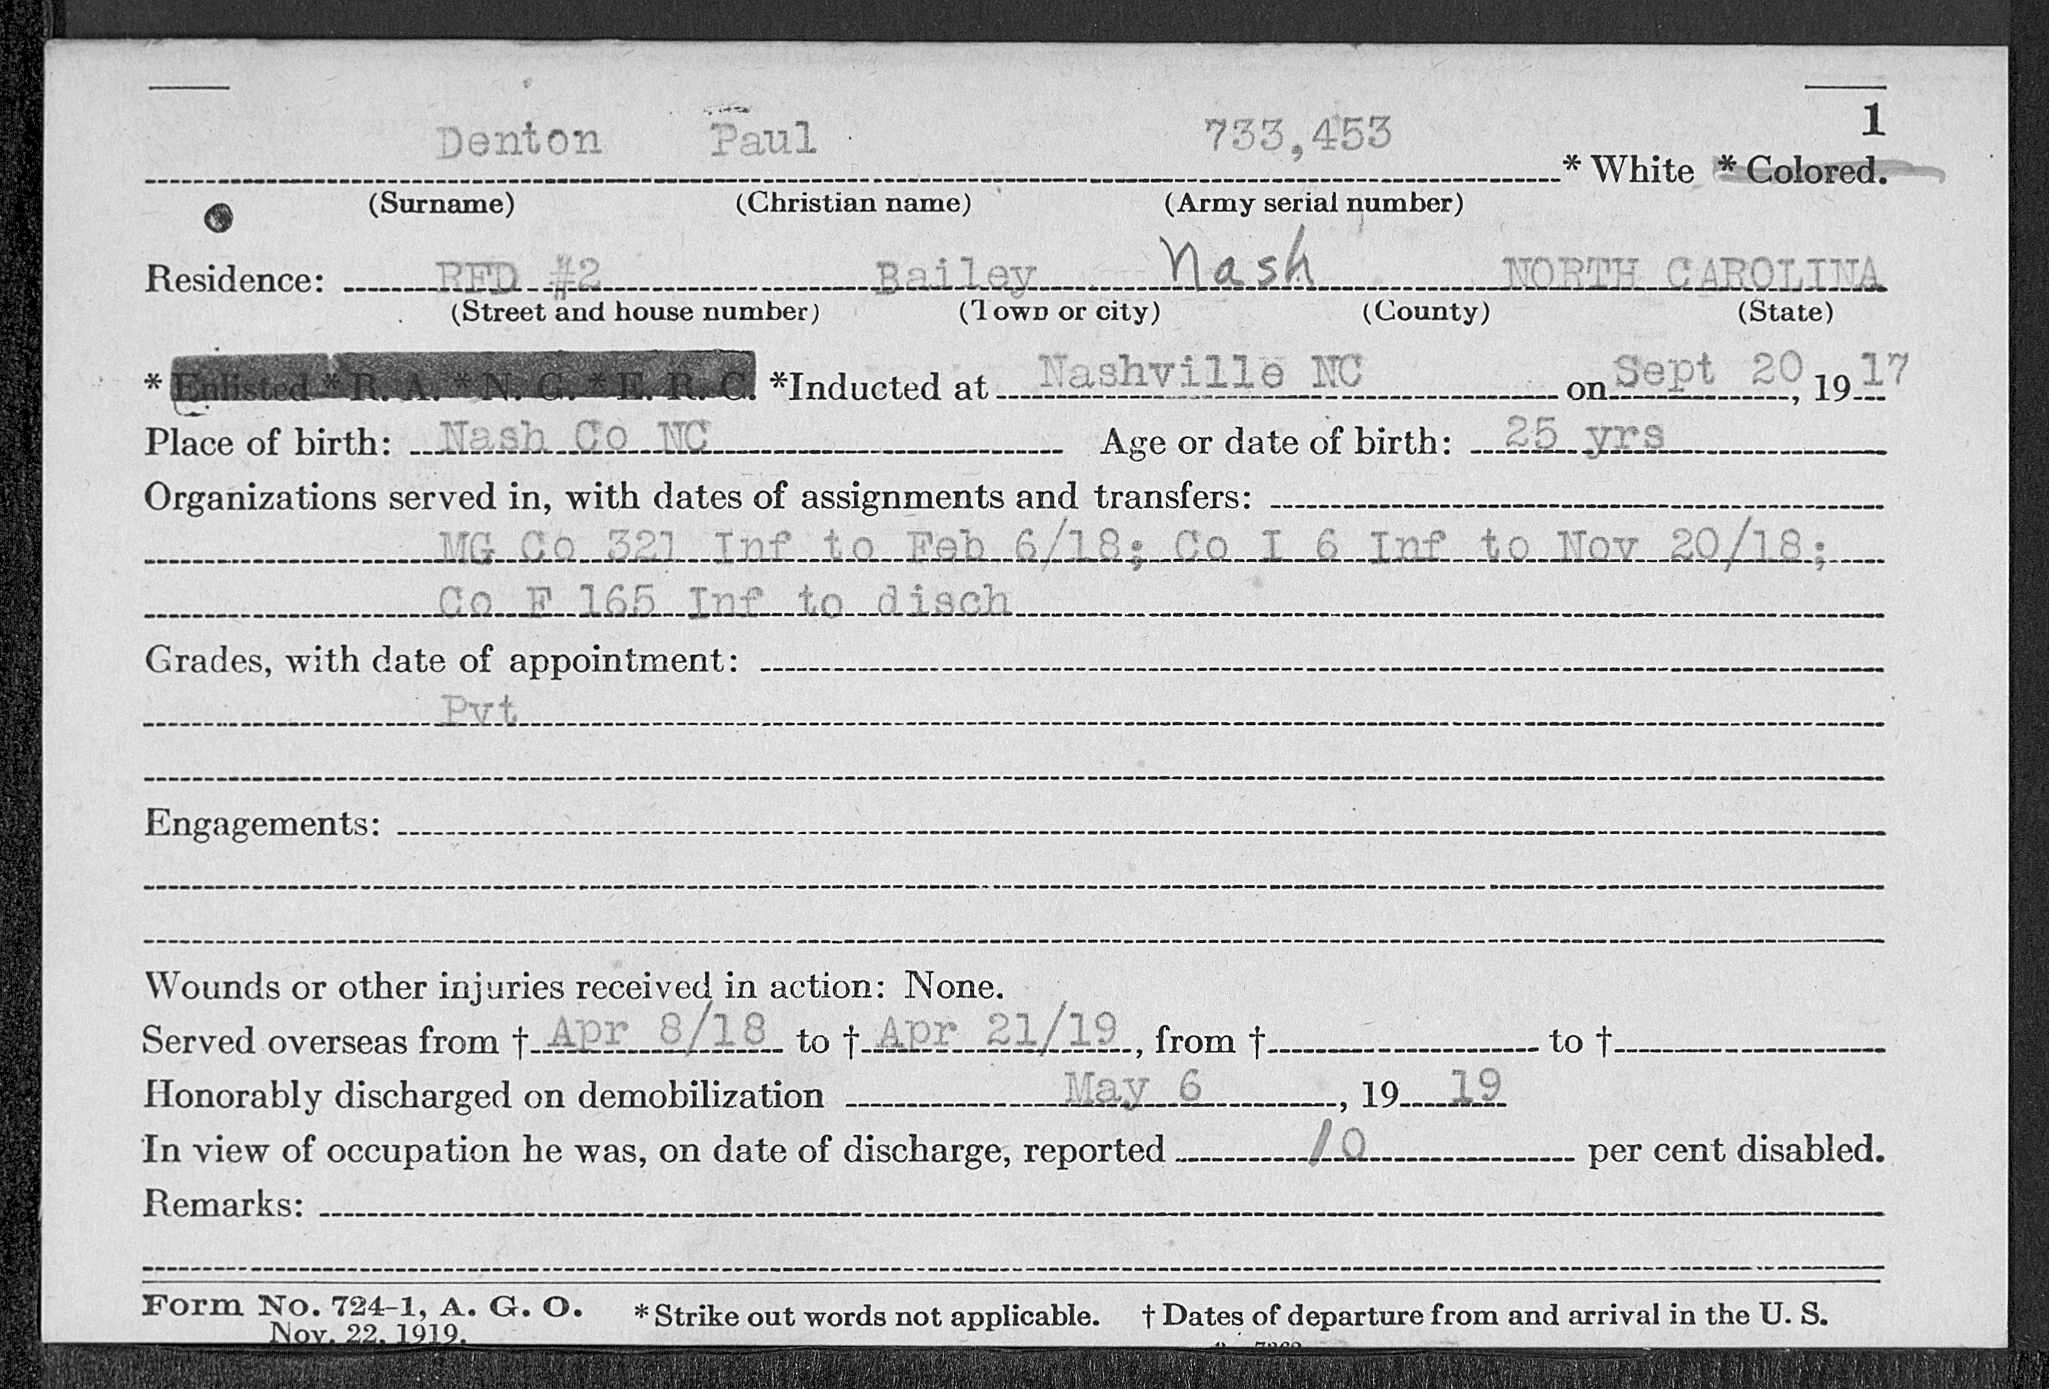 1
Denton Paul 733,453 * White * Colored.
(Surname) (Christian name) (Army serial number)
Residence: RFD #2 Bailey Nash NORTH CAROLINA
(Street and house number) (Town or city) (County) (State)
* Enlisted * R. A. * N. G. * E. R. C. *Inducted at Nashville NC on Sept 20, 19 17
Place of birth: Nash Co NC Age or date of birth: 25 yrs
Organizations served in, with dates of assignments and transfers:
MG Co 321 Inf to Feb 6/18; Co I 6 Inf to Nov 20/18;
Co F 165 Inf to disch
Grades, with date of appointment:
Pvt
Engagements:
Wounds or other injuries received in action: None.
Served overseas from † Apr 8/18 to † Apr 21/19, from † to †
Honorably discharged on demobilization May 6, 19 19
In view of occupation he was, on date of discharge, reported 10 per cent disabled.
Remarks:
Form No. 724-1, A. G. O. * Strike out words not applicable. † Dates of departure from and arrival in the U. S.
Nov. 22, 1919.